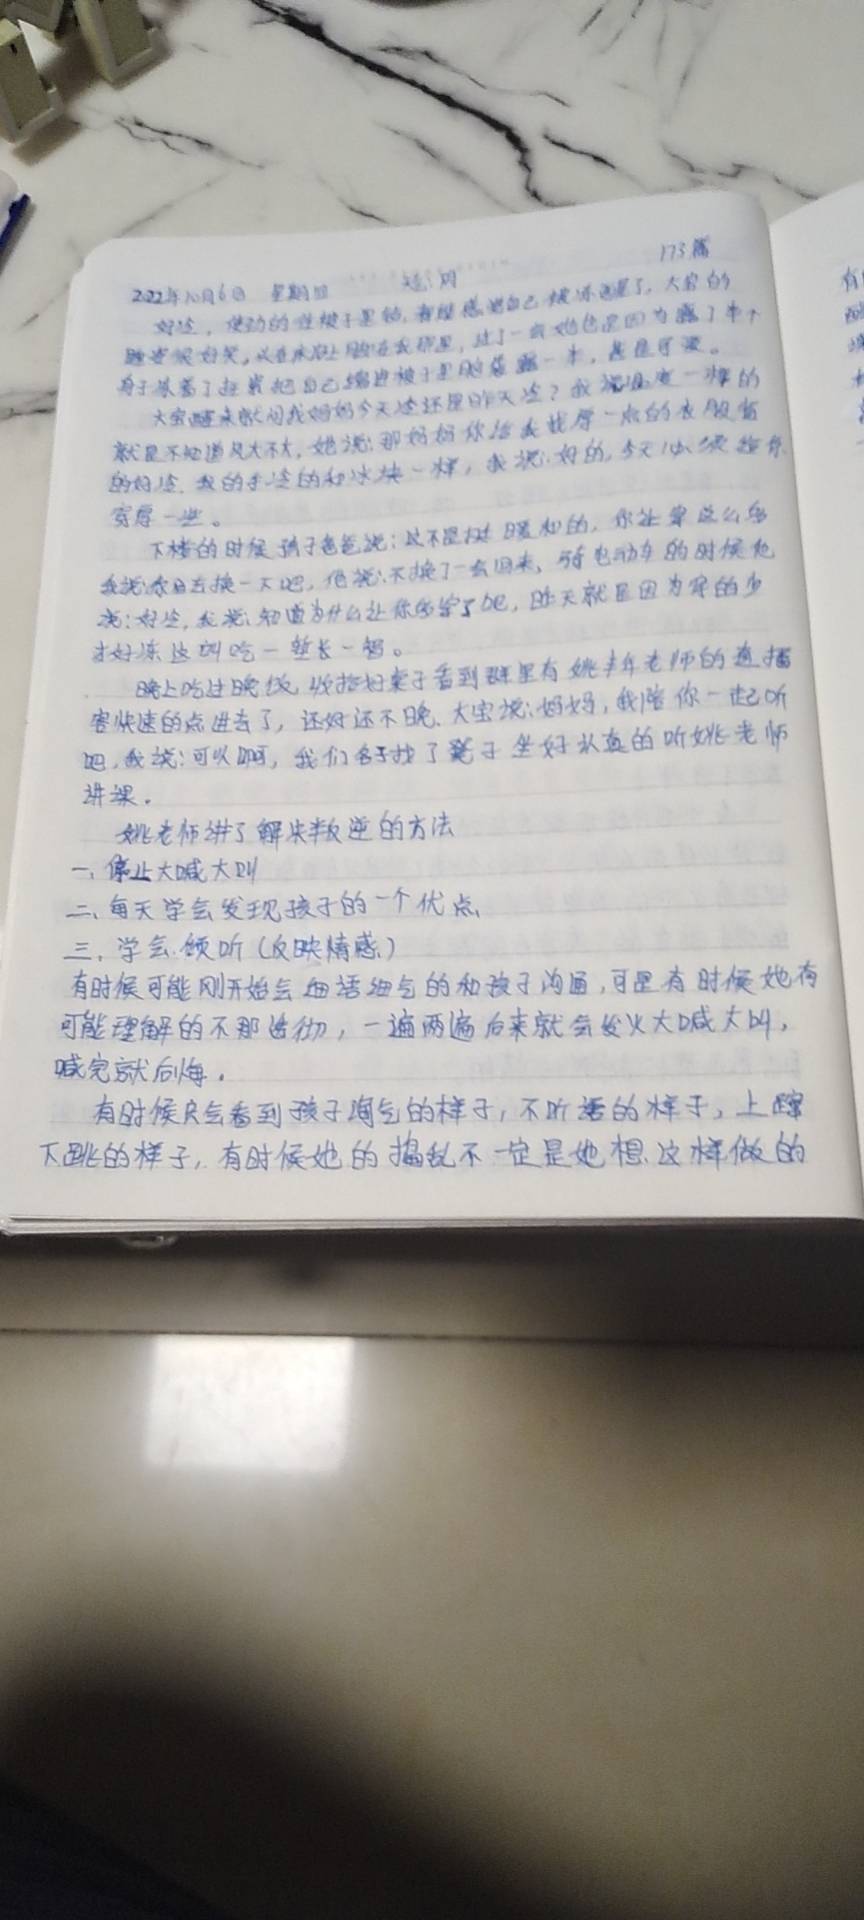 173篇
2022年10月6日 星期四
好冷，使劲的往被子里钻，自己被冻醒了，大宝的
睡姿很好笑，过了一会她也是因为露了半个
身子冻着了赶紧把自己缩进被子里脑袋露一半，甚是可爱。
大宝醒来就问我妈妈今天冷还是昨天冷？我说温度一样的
就是不知道风大不大，她说：那妈妈你给我找厚一点的衣服
的好冷，我的手冷的和冰块一样，我说：好的，今天必须给你
穿厚一些。
下楼的时候孩子爸爸说：这不是挺暖和的，你让穿这么多
我说你回去换一下吧，他说：不换了一会回来，骑电动车的时候他
说：好冷，我说：知道为什么让你多穿了吧，昨天就是因为穿的少
才好冻这叫吃一堑长一智。
晚上吃过晚饭，收拾好桌子看到群里有姚老师的直播
快速的点进去了，还好还不晚，大宝说：妈妈，我陪你一起听
吧，我说：可以啊，我们各子找了凳子坐好认真的听姚老师
讲课。
姚老师讲了解决叛逆的方法
一、停止大喊大叫
二、每天学会发现孩子的一个优点、
三、学会倾听（反映情感）
有时候可能刚开始会细语细气的和孩子沟通，可是有时候她有
可能理解的不那透彻，一遍两遍后来就会发火大喊大叫，
喊完就后悔。
有时候只会看到孩子淘气的样子，不听话的样子，上蹿
下跳的样子，有时候她的捣乱不一定是她想这样做的